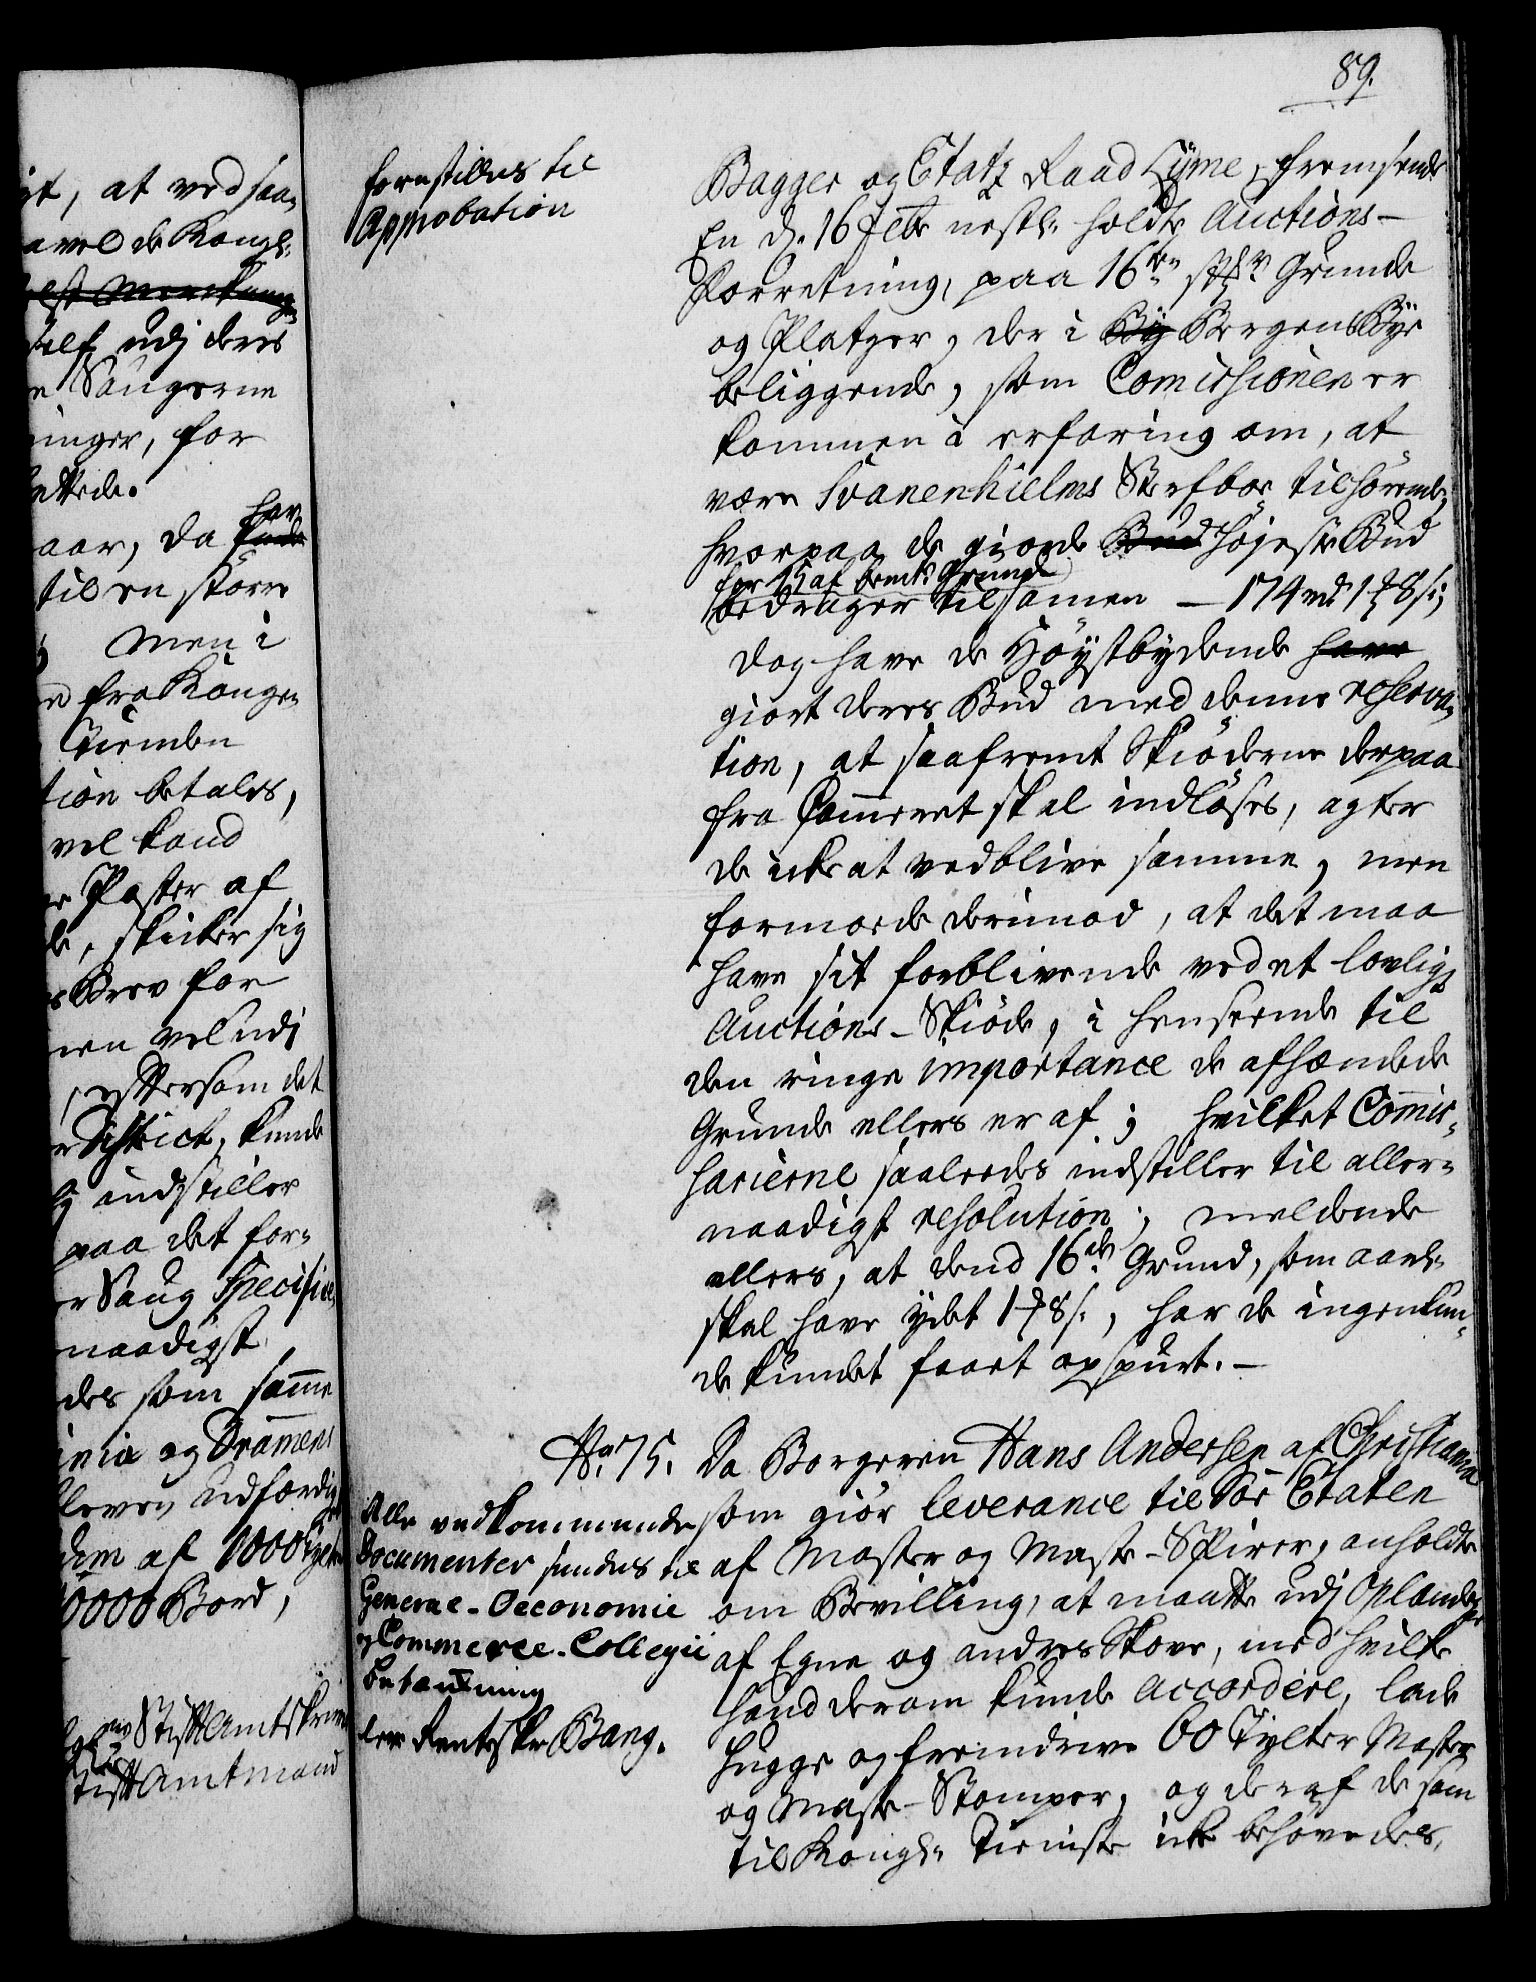 89.
forestilles til
Approbation
Bagger og Etatz Raad Lyme, fremsende
En d. 16 Febr nestl. holdte Auctions-
Forretning, paa 16ten st: Grunde
og Platzer, der i By Bergens Bye
beliggende, som Comissionen er
kommen i erfaring om, at
være Svanenhielms Sterfboe tilhørende,
hvorpaa de giorde Bud højeste Bud
for 15 af bemte Grunde
bedrager tilsamen — 174 rd 1 8 s;
dog have de Höystbydende have
giort deres Bud med denne reserva-
tion, at saafremt Skiöderne derpaa
fra Cammeret skal indlöses, agter
de icke at vedblive samme, men
formoede derimod, at det maa
have sit forblivende ved et lovlig
Auctions-Skiöde, i henseende til
den ringe importance de afhændede
Grunde ellers er af; hvilket Commis-
sarierne saaleedes indstiller til aller-
naadigst resolution; meldende
ellers, at dend 16de Grund, som aarl.
skal have ydet 1 8 s., har de ingenlun-
de kundet faaet opspurt. —
No. 75. Da Borgeren Hans Andersen af Christiania
som giör leverance til Söe Etaten
af Master og Maste-Spirer, anholdte
om Bevilling, at maatte udj Oplandene
af Egne og andres Skove, med hvilke
hand derom kunde accordere, lade
hugge og fremdrive 60 Tylter Master
og Maste-Stomper, og deraf de som
til Kongl. Tieniste icke behövedes,
Alle vedkommende
Documenter sendes til
General-Oeconomie
og Commerce-Collegii
betænkning
lev. Rentskr. Bang.
at ved saa-
avel de Kongl.
self udj deres
Saugerne
inger, for
ettede.
har
aar, da
til en större
Men i
fra Kongen
Tienden
tion betales,
vel kand
Poster af
skicker sig
Brev for
vel udj
eftersom det
District, kunde
indstiller
paa det for-
Saug Specifice-
naadigst
des som samme
inia og Drammens
leven udfærdi-
dem af 1000
0000 Bord,
Stiftamtskriver
Stiftamtmand